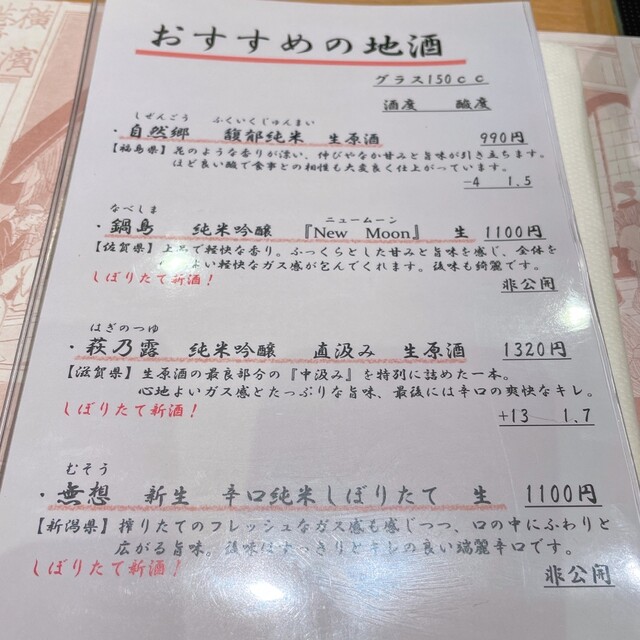 おすすめの地酒
グラス150cc
酒度 酸度
しぜんごう ふくいくじゅんまい
・自然郷 馥郁純米 生原酒 990円
【福島県】花のような香りが漂い、伸びやなか甘みと旨味が引き立ちます。
ほど良い酸で食事との相性も大変良く仕上がっています。
-4 1.5
なべしま ニュームーン
・鍋島 純米吟醸 『New Moon』 生 1100円
【佐賀県】上品で軽快な香り。ふっくらとした甘みと旨味を感じ、全体を
よい軽快なガス感が包んでくれます。後味も綺麗です。
しぼりたて新酒! 非公開
はぎのつゆ
・萩乃露 純米吟醸 直汲み 生原酒 1320円
【滋賀県】生原酒の最良部分の『中汲み』を特別に詰めた一本。
心地よいガス感とたっぷりな旨味、最後には辛口の爽快なキレ。
しぼりたて新酒! +13 1.7
むそう
・無想 新生 辛口純米しぼりたて 生 1100円
【新潟県】搾りたてのフレッシュなガス感も感じつつ、口の中にふわりと
広がる旨味。後味はすっきりとキレの良い端麗辛口です。
しぼりたて新酒! 非公開